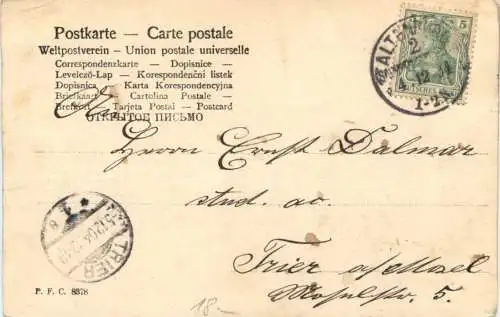 Postkarte — Carte postale
Weltpostverein — Union postale universelle
Correspondenzkarte — Dopisnice —
Levelező-Lap — Korespondenční listek
Dopisnica — Karta Korespondencyjna
Briefkaart — Cartolina Postale —
Brefkort — Tarjeta Postal — Postcard
ОТКРЫТОЕ ПИСЬМО
An
5
2
12
1-2
Herrn Ernst Dalmar
stud. ac.
TRIER
Trier a/Mosel
Moselstr. 5.
P. F. C. 8378
18.-